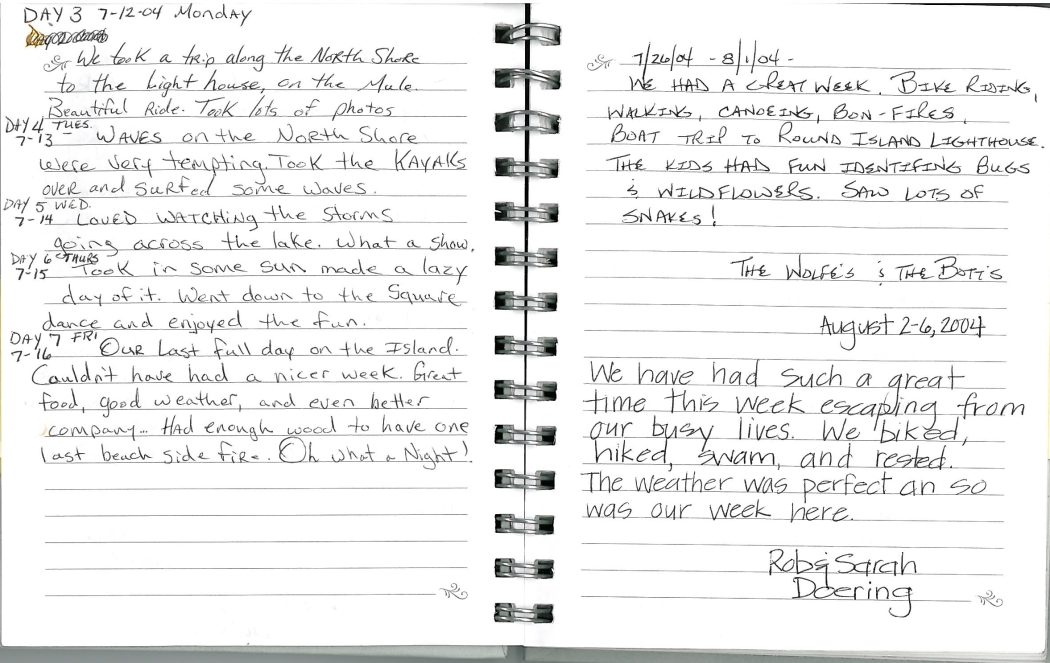 DAY 3 7-12-04 Monday
We took a trip along the North Shore
to the Light house, on the Mule.
Beautiful Ride. Took lots of photos
DAY 4 TUES.
7-13 WAVES on the North Shore
were very tempting. Took the KAYAKS
over and surfed some waves.
DAY 5 WED.
7-14 LOVED WATCHing the Storms
going across the lake. What a show.
DAY 6 THURS
7-15 Took in some sun made a lazy
day of it. Went down to the Square
dance and enjoyed the fun.
DAY 7 FRI
7-16 Our Last full day on the Island.
Couldn't have had a nicer week. Great
food, good weather, and even better
company... Had enough wood to have one
last beach side fire. Oh what a Night!
7/26/04 - 8/1/04 -
WE HAD A GREAT WEEK. BIKE RIDING,
WALKING, CANOEING, BON-FIRES,
BOAT TRIP TO ROUND ISLAND LIGHTHOUSE.
THE KIDS HAD FUN IDENTIFING BUGS
& WILDFLOWERS. SAW LOTS OF
SNAKES!
THE WOLFE'S & THE BOTT'S
August 2-6, 2004
We have had such a great
time this week escaping from
our busy lives. We biked,
hiked, swam, and rested.
The weather was perfect an so
was our week here.
Rob & Sarah
Doering